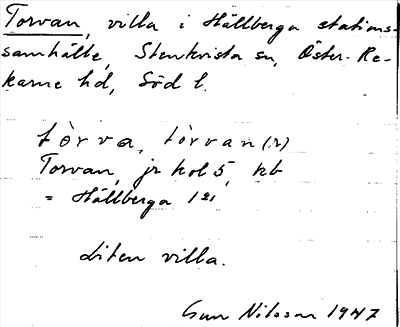 Torvan, villa i Hällberga stations-
samhälle, Stenkvista sn, Öster-Re-
karne hd, Söd l.
tòrva, tòrvan (?)
Torvan, jr kol 5, kb
= Hällberga 1
Liten villa.
Gun Nilsson 1947